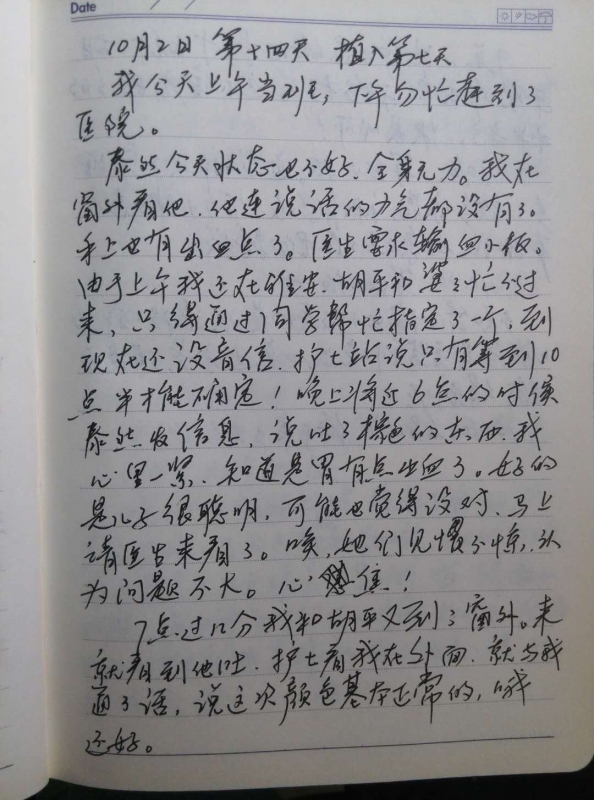 Date
10月2日 第十四天 植入第七天
我今天上午当班，下午匆忙赶到了
医院。
泰然今天状态也不好，全身无力。我在
窗外看他，他连说话的力气都没有了。
手上也有出血点了。医生要求输血小板。
由于上午我还在雅安，胡平和婆婆忙不过
来，只得通过同学帮忙指定了一个，到
现在还没音信，护士站说只有等到10
点半才能确定！晚上将近6点的时候
泰然发信息，说吐了棕色的东西，我
心里一紧，知道是胃有点出血了。好的
是儿子很聪明，可能也觉得没对，马上
请医生来看了。唉，她们见惯不惊，认
为问题不大。心焦！
7点过几分我和胡平又到了窗外。来
就看到他吐，护士看我在外面，就与我
通了话，说这次颜色基本正常的，哦
还好。